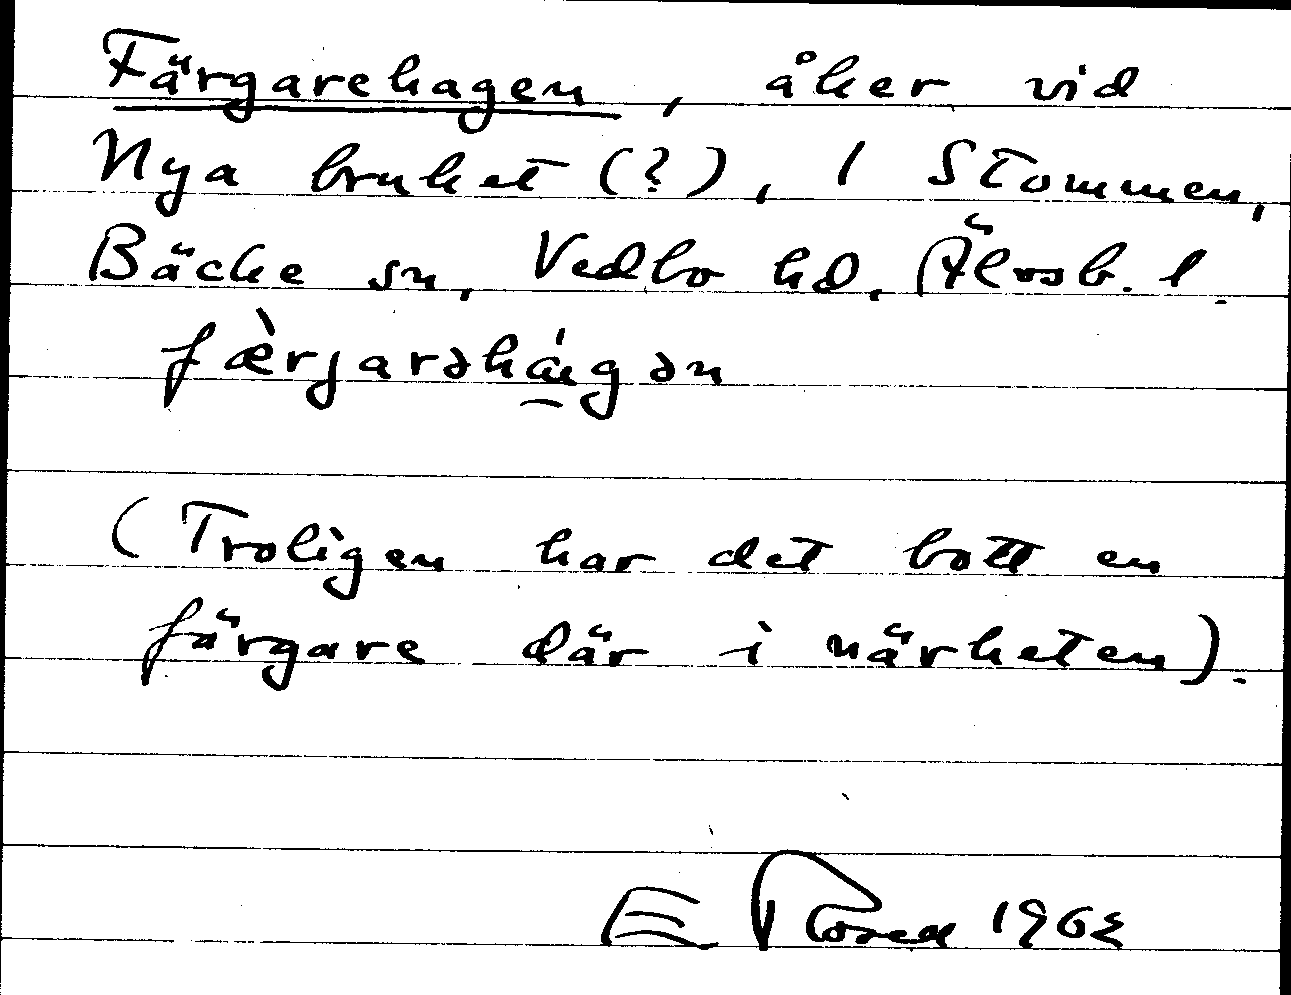 Färgarehagen, åker vid
Nya bruket (?), 1 Stommen,
Bäcke sn, Vedbo hd, Älvsb. l.
fæ̀rjarəhágən
(Troligen har det bott en
färgare där i närheten).
E 1962